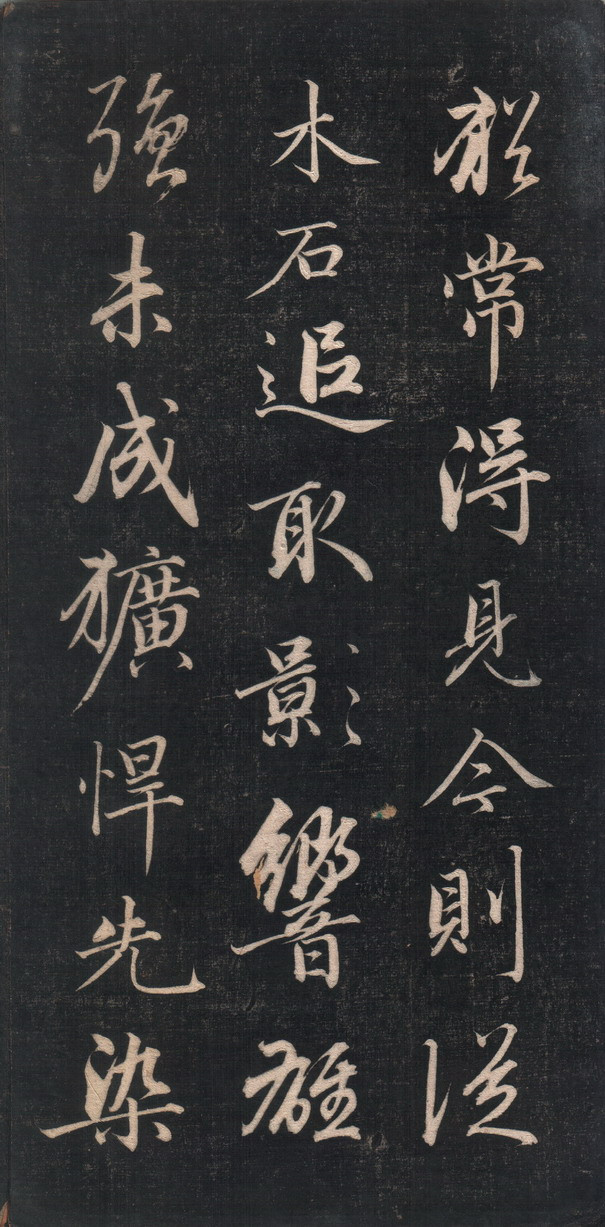 於常得見今則從
木石追取影響雄
強未成獷悍先染